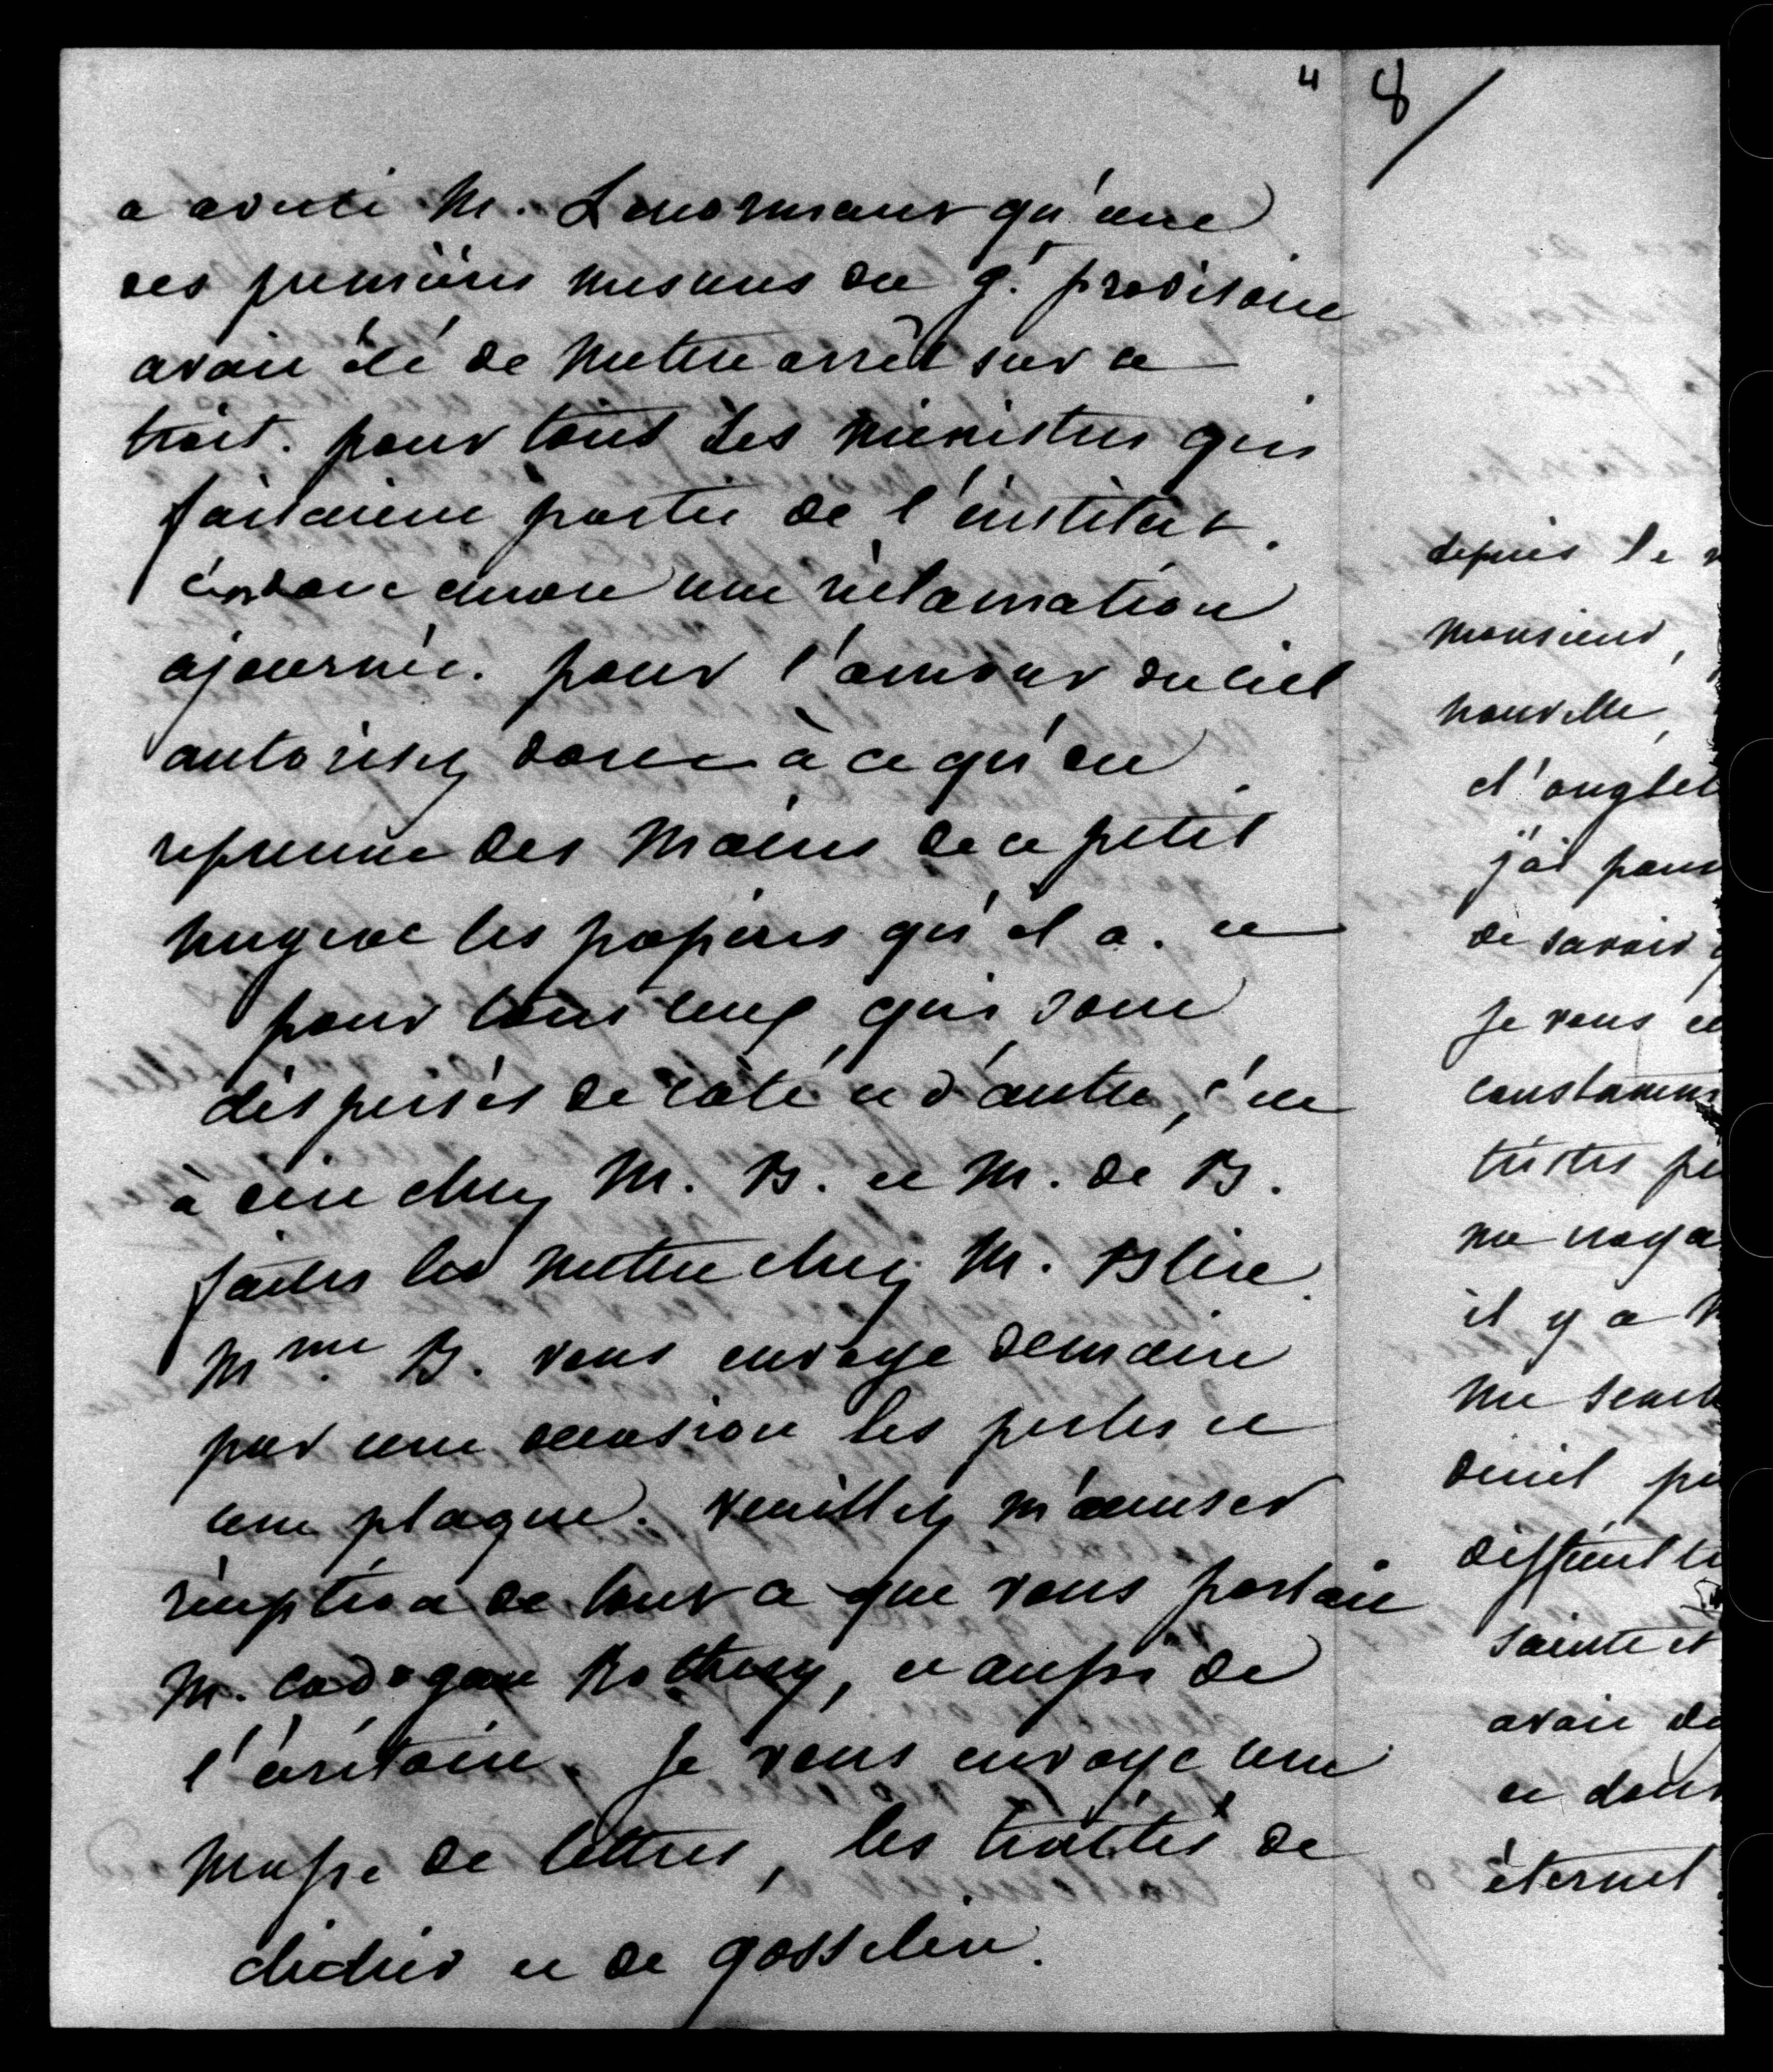 4
8/
a averti M. Lenormant qu'une
des premières mesures du g.t provisoire
avait été de mettre arrêt sur le
trait. pour tous les ministres qui
faisaient partie de l'institut.
c'est donc encore une réclamation
ajournée. pour l'amour du ciel
autorisez donc à ce qu'on
reprenne des mains de ce petit
les papiers qu'il a. et
pour tous ceux qui sont
dispersés de côté et d'autre, c'est
à dire chez M. B. et M. de B.
faites les mettre chez M. Blin
Mme B. vous envoye demain
par une occasion les perles et
une plaque. veuillez m'accuser
réception de tout ce que vous portait
M. Cadogan Rothery, et aussi de
l'écritoire. Je vous envoye une
masse de lettres, les traités de
didier et de gosselin.
depuis le
monsieur,
nouvelle,
d'anglet
j'ai pour
de savoir
Je vous
constamm
tristes pe
me
il y a
me sembl
deuil
difficult
sainte et
avait de
et dont
éternel.